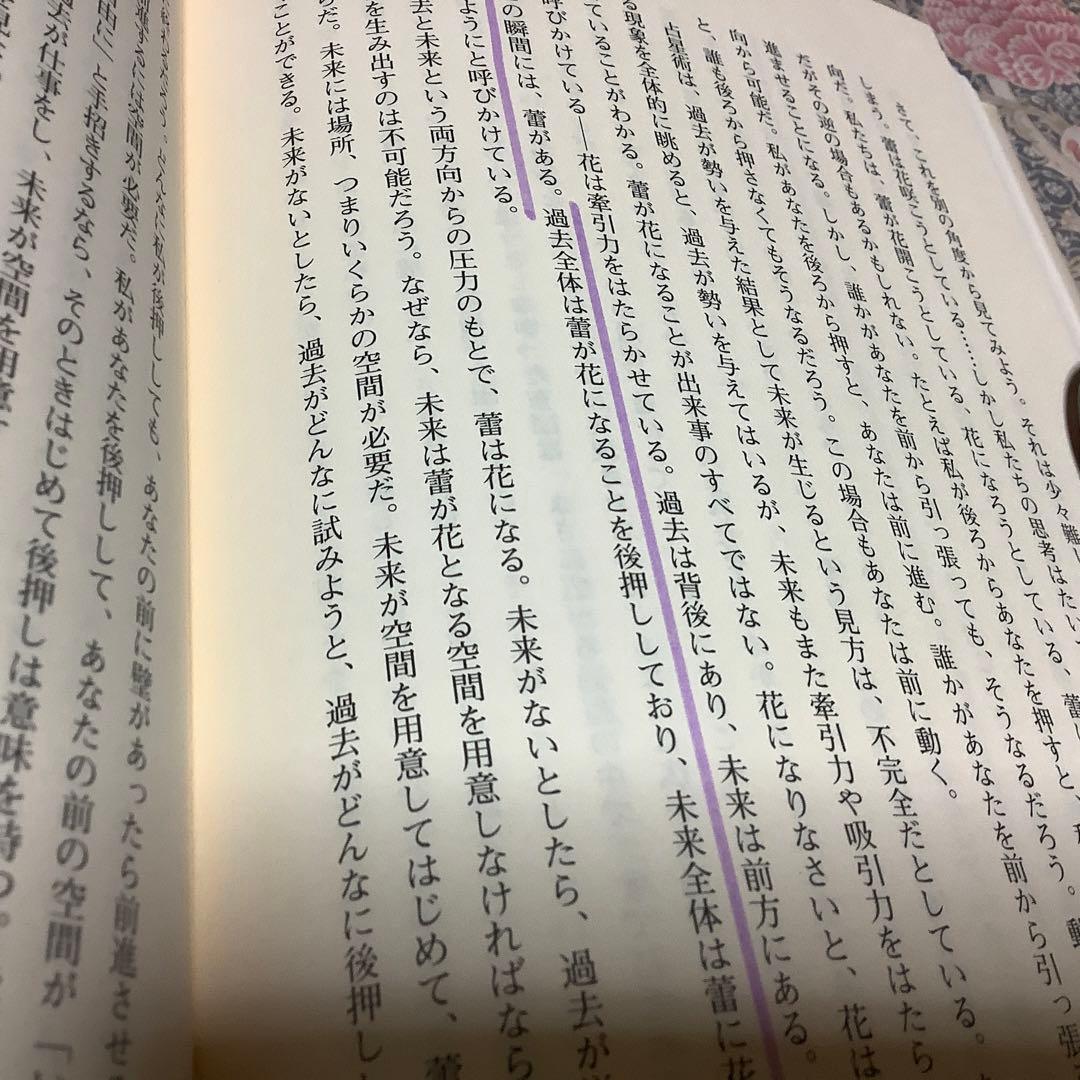 さて、これを別の角度から見てみよう。それは少々難し
しまう。蕾は花咲こうとしている……しかし私たちの思考はたい
向だ。私たちは、蕾が花開こうとしている、花になろうとしている、蕾
だがその逆の場合もあるかもしれない。たとえば私が後ろからあなたを押すと、
進ませることになる。しかし、誰かがあなたを前から引っ張っても、そうなるだろう。動
向から可能だ。私があなたを後ろから押すと、あなたは前に進む。誰かがあなたを前から引っ張
と、誰も後ろから押さなくてもそうなるだろう。この場合もあなたは前に動く。
占星術は、過去が勢いを与えた結果として未来が生じるという見方は、不完全だとしている。
る現象を全体的に眺めると、過去が勢いを与えてはいるが、未来もまた牽引力や吸引力をはたら
ていることがわかる。蕾が花になることが出来事のすべてではない。花になりなさいと、花は
呼びかけている――花は牽引力をはたらかせている。過去は背後にあり、未来は前方にある。
の瞬間には、蕾がある。過去全体は蕾が花になることを後押ししており、未来全体は蕾に花
ようにと呼びかけている。
去と未来という両方向からの圧力のもとで、蕾は花になる。未来がないとしたら、過去が
を生み出すのは不可能だろう。なぜなら、未来は蕾が花となる空間を用意しなければなら
らだ。未来には場所、つまりいくらかの空間が必要だ。未来が空間を用意してはじめて、蕾
ことができる。未来がないとしたら、過去がどんなに試みようと、過去がどんなに後押し
進するには空間が必要だ。私があなたを後押ししても、あなたの前に壁があったら前進させ
由に」と手招きするなら、そのときはじめて後押しして、あなたの前の空間が「
去が仕事をし、未来が空間を用意
後押しは意味を持つ。